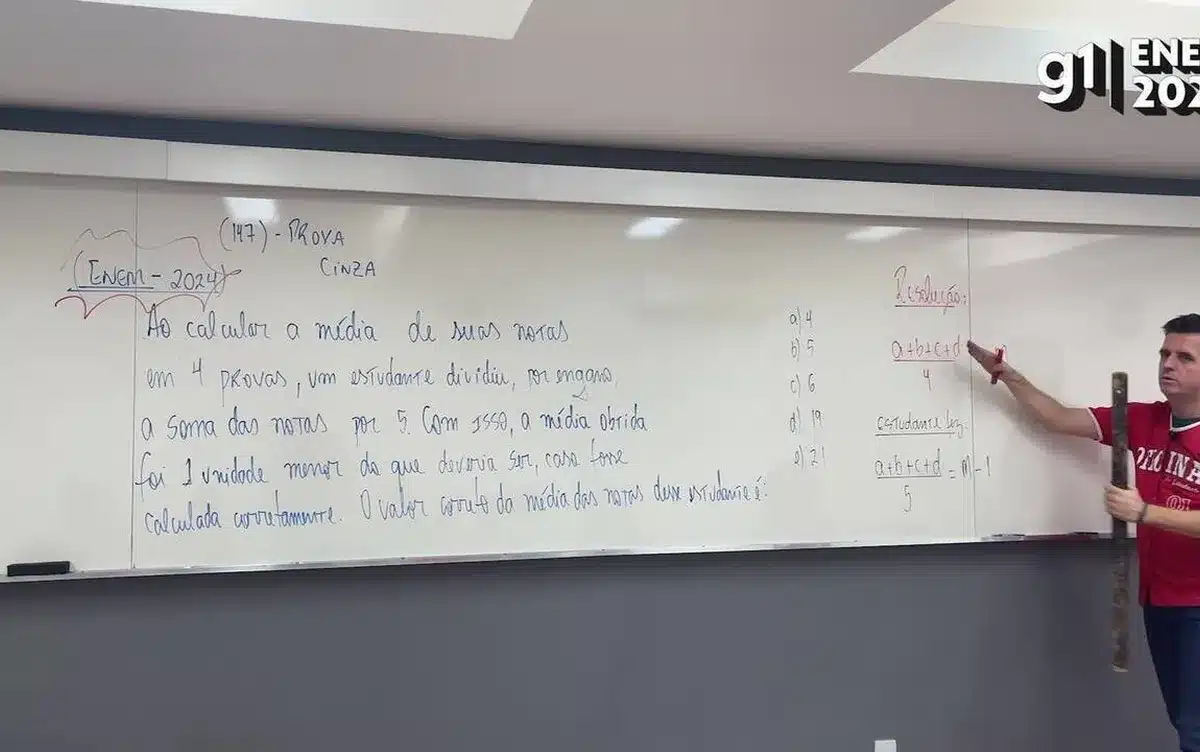 g1 ENE
202
(147) - PROVA
CINZA
(ENEM - 2024)
Ao calcular a média de suas notas
em 4 PROVAS, um estudante dividiu, por engano,
a soma das notas por 5. Com isso, a média obtida
foi 1 unidade menor do que deveria ser, caso fosse
calculada corretamente. O valor correto da média das notas desse estudante é:
a) 4
b) 5
c) 6
d) 19
e) 21
Resolução:
a+b+c+d
4
estudante fez:
a+b+c+d = m - 1
5